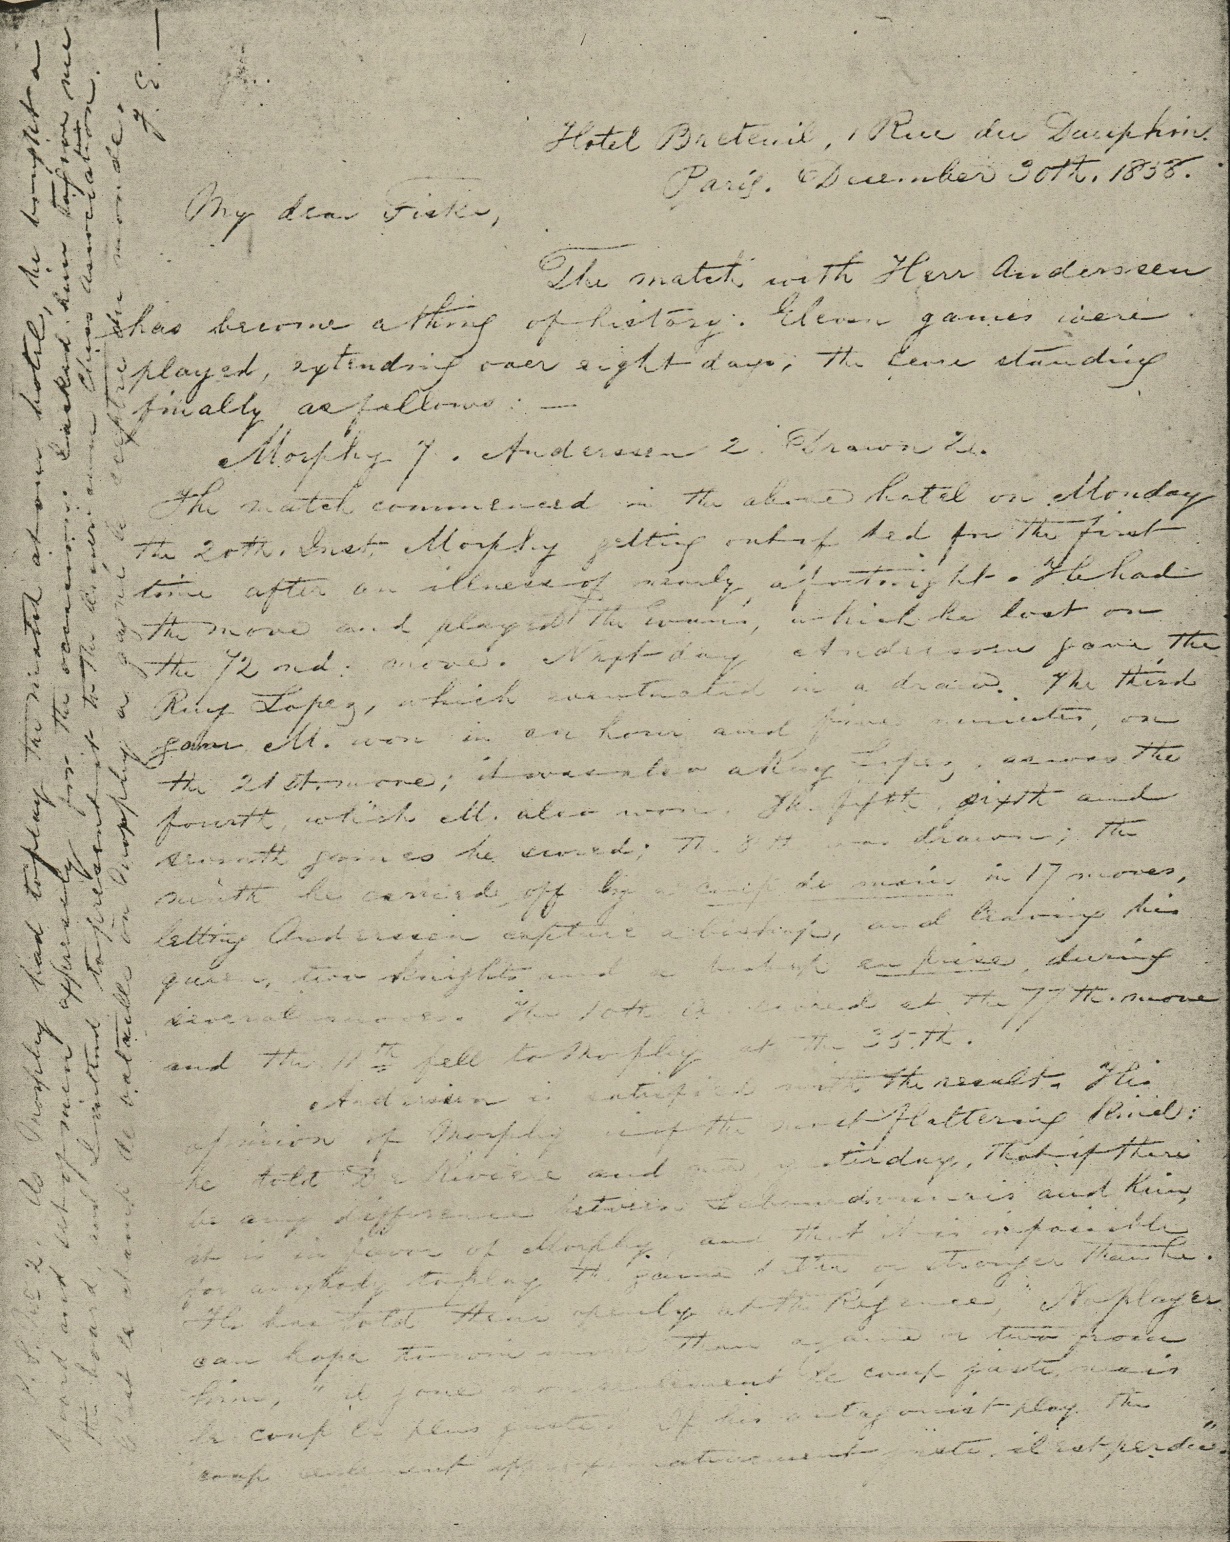 Hotel Breteuil, 1 Rue du Dauphin.
Paris. December 30th. 1858.
My dear Fiske,
The match with Herr Anderssen
has become a thing of history. Eleven games were
played, extending over eight days; the score standing
finally as follows: —
Morphy 7. Anderssen 2. Drawn 2.
The match commenced in the above hotel on Monday
the 20th. Inst. Morphy getting out of bed for the first
time after an illness of nearly a fortnight. He had
the move and played the Evans, which he lost on
the 72nd. move. Next day Anderssen gave the
Ruy Lopez, which eventuated in a draw. The third
game M. won in an hour and five minutes, on
the 21st. move; it was also a Ruy Lopez, as was the
fourth, which M. also won. The fifth, sixth and
seventh games he scored; the 8th was drawn; the
ninth he carried off by a coup de main in 17 moves,
letting Anderssen capture a bishop, and leaving his
queen, two knights and a bishop en prise, during
several moves. The 10th A. scored at the 77th. move
and the 11th fell to Morphy at the 35th.
Anderssen is satisfied with the result. His
opinion of Morphy is of the most flattering kind:
he told De Riviere and me yesterday, that if there
be any difference between Labourdonnais and him,
it is in favor of Morphy, and that it is impossible
for anybody to play the game better or stronger than he.
He has told them openly at the Régence, "No player
can hope to win more than a game or two from
him," "il joue non seulement le coup juste, mais
le coup le plus juste. If his antagonist play the
coup seulement approximativement juste, il est perdu".
P.S. No 2. As Morphy had to play the match at our hotel, he bought a
board and set of men expressly for the occasion. I asked him to give me
the board, and I intend to present it to the American Chess Association.
C'est le champ de bataille où Morphy a gagné le sceptre du monde.
F. E. —